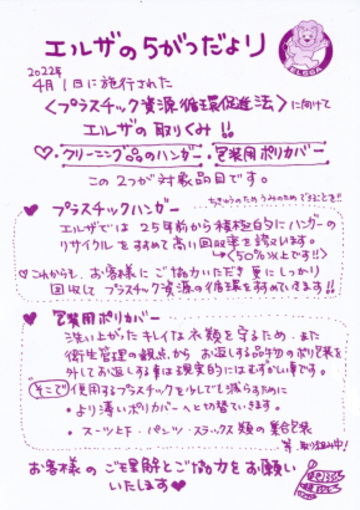 エルザの5がつだより
ELGGA
2022年
4月1日に施行された
〈プラスチック資源循環促進法〉に向けて
エルザの取りくみ!!
♡・クリーニング品のハンガー・包装用ポリカバー
この2つが対象品目です。
ちきゅうのため うみのため できることを!!
♥ プラスチックハンガー
エルザでは25年前から積極的にハンガーの
リサイクルをすすめて高い回収率を誇ります。
〈50%以上です!!〉
♡これからも、お客様にご協力いただき更にしっかり
回収してプラスチック資源の循環をすすめていきます!!
♥ 包装用ポリカバー
洗い上がったキレイな衣類を守るため、また
衛生管理の観点から お返しする品物のポリ包装を
外してお返しする事は現実的にはむずかしい事です。
そこで 使用するプラスチックを少しでも減らすために
・より薄いポリカバーへと切替ていきます。
・スーツ上下・パンツ・スラックス類の集合包装
等、取り組み中!
お客様のご理解とご協力をお願い
いたします♥